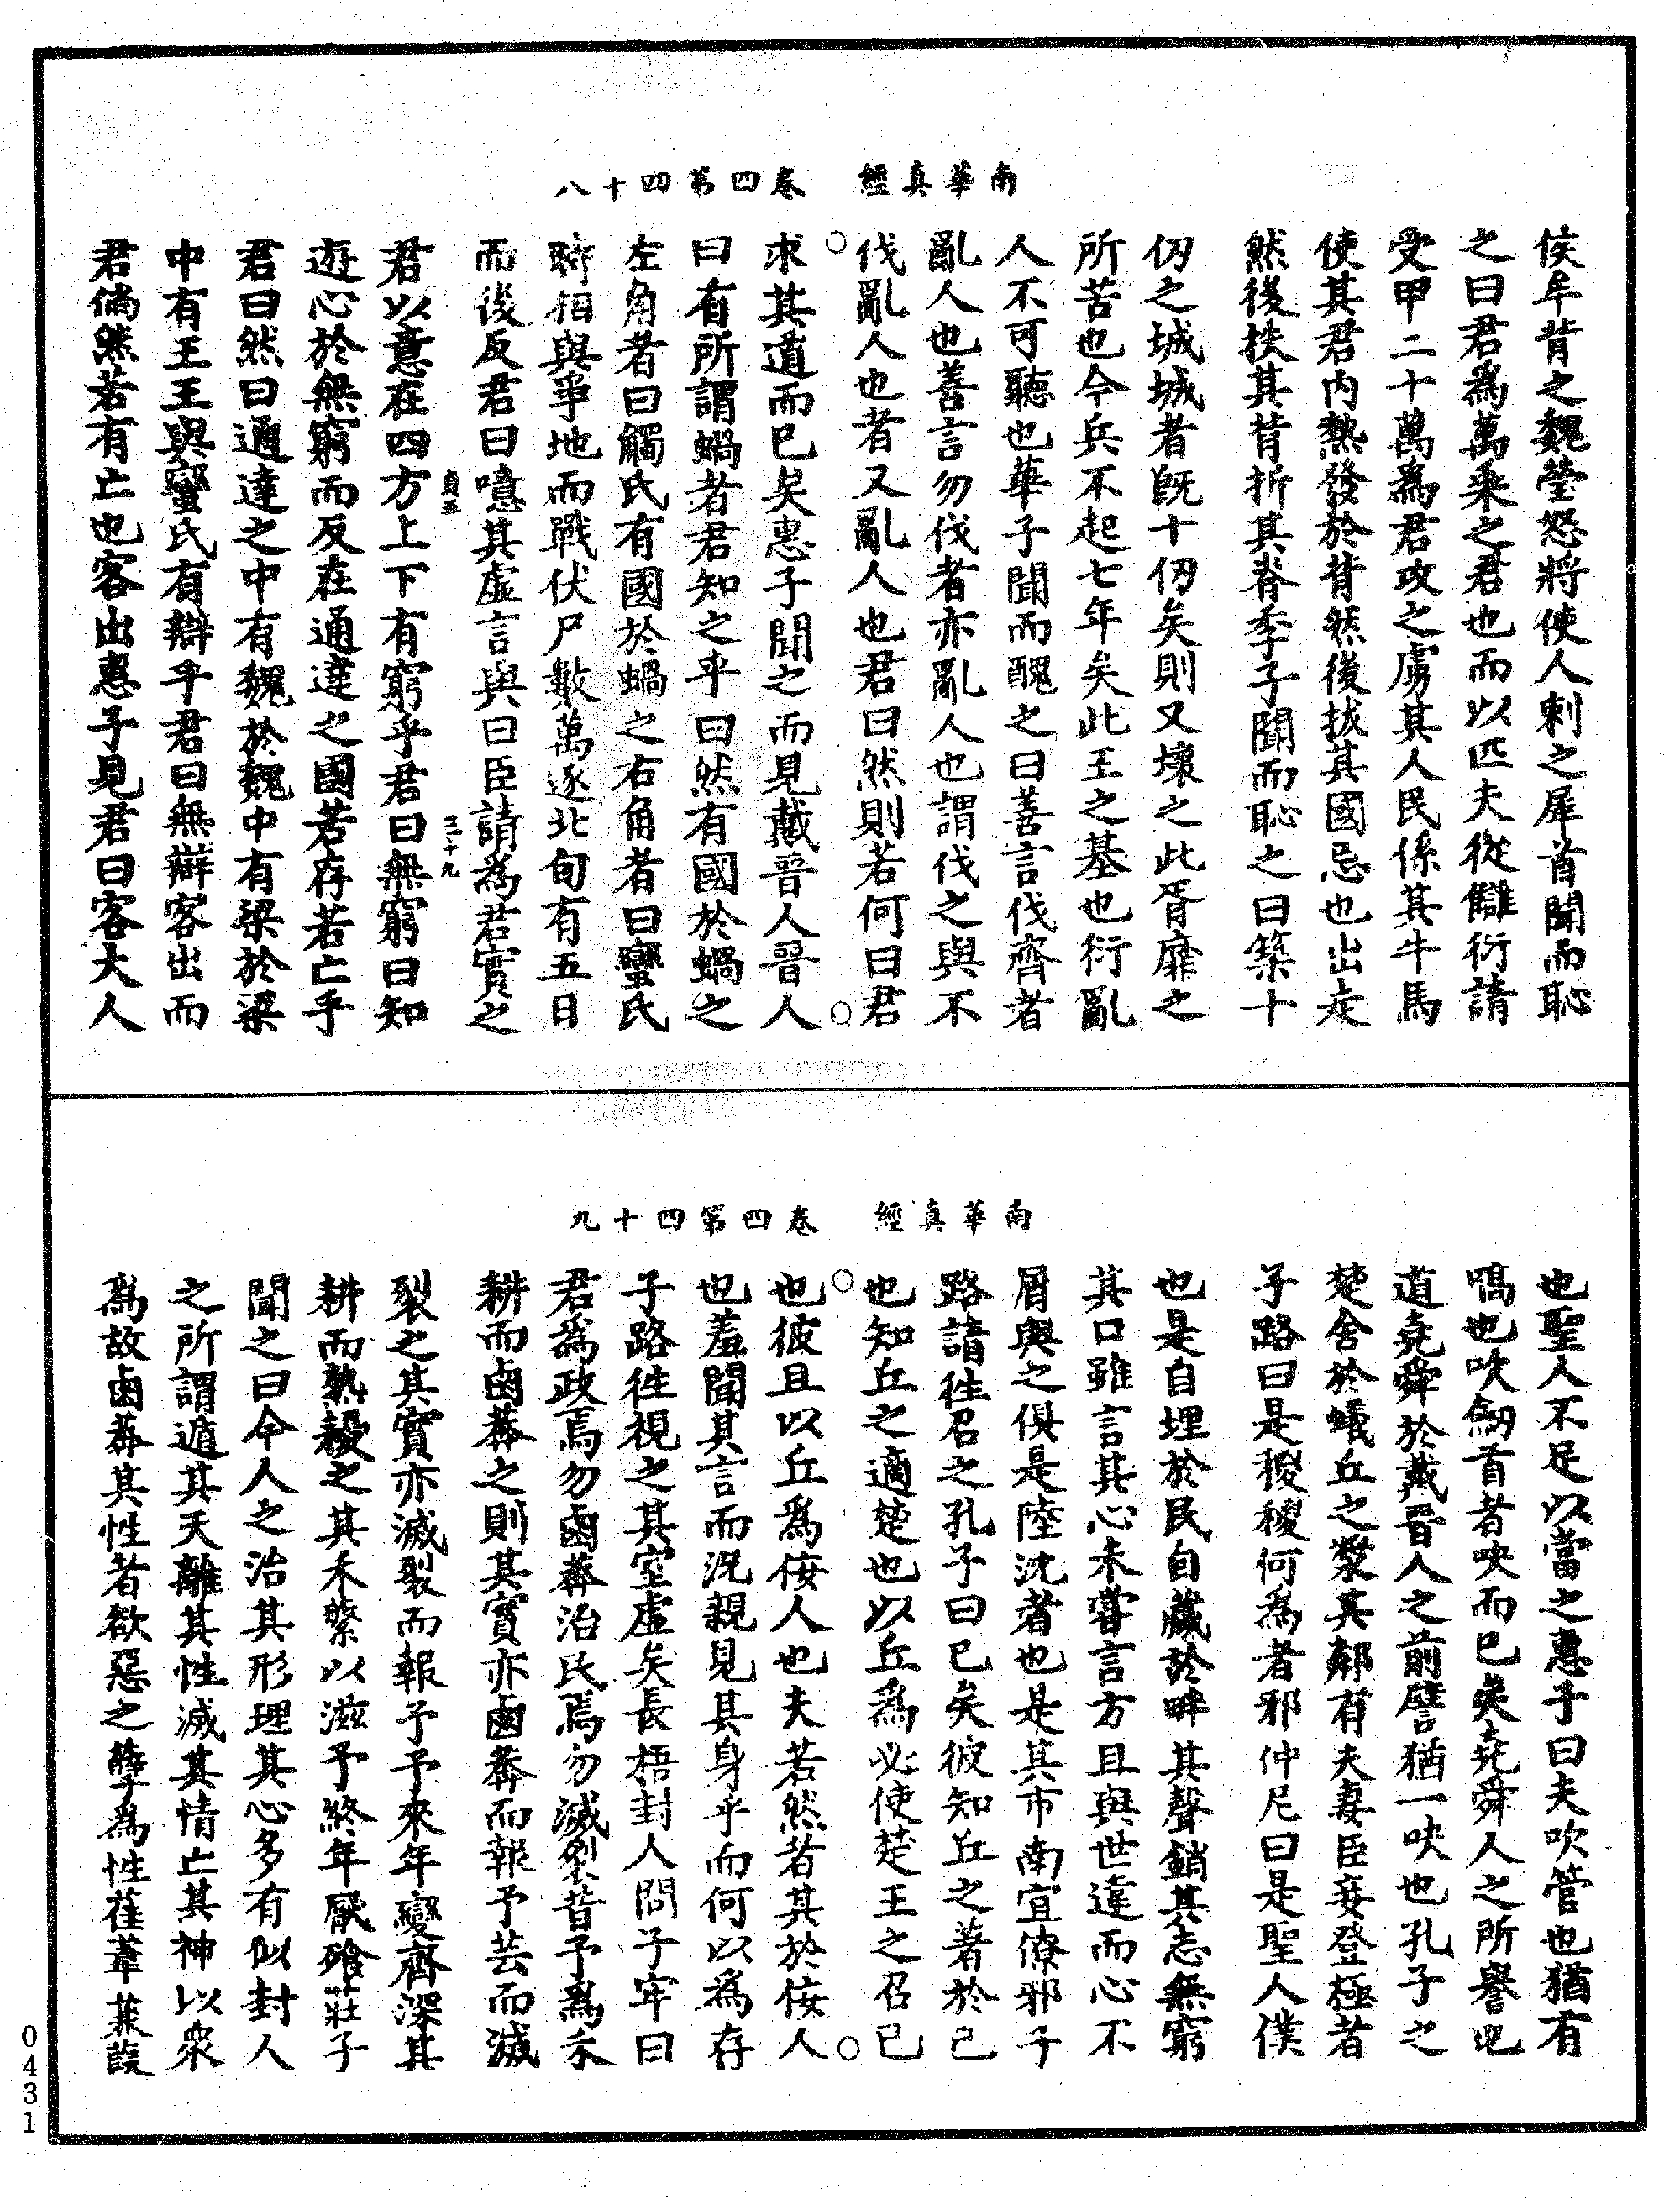 南華真經　卷四第四十八
侯牟背之魏瑩怒將使人刺之犀首聞而恥
之曰君為萬乘之君也而以匹夫從讎衍請
受甲二十萬為君攻之虜其人民係其牛馬
使其君內熱發於背然後拔其國忌也出走
然後抶其背折其脊季子聞而恥之曰築十
仞之城城者既十仞矣則又壞之此胥靡之
所苦也今兵不起七年矣此王之基也衍亂
人不可聽也華子聞而醜之曰善言伐齊者
亂人也善言勿伐者亦亂人也謂伐之與不
伐亂人也者又亂人也君曰然則若何曰君
求其道而已矣惠子聞之而見戴晉人晉人
曰有所謂蝸者君知之乎曰然有國於蝸之
左角者曰觸氏有國於蝸之右角者曰蠻氏
時相與爭地而戰伏尸數萬逐北旬有五日
而後反君曰噫其虛言與曰臣請為君實之
貞五　三十九
君以意在四方上下有窮乎君曰無窮曰知
遊心於無窮而反在通達之國若存若亡乎
君曰然曰通達之中有魏於魏中有梁於梁
中有王王與蠻氏有辯乎君曰無辯客出而
君惝然若有亡也客出惠子見君曰客大人
南華真經　卷四第四十九
也聖人不足以當之惠子曰夫吹管也猶有
嗃也吹劒首者吷而已矣堯舜人之所譽也
道堯舜於戴晉人之前譬猶一吷也孔子之
楚舍於蟻丘之漿其鄰有夫妻臣妾登極者
子路曰是稯稯何為者邪仲尼曰是聖人僕
也是自埋於民自藏於畔其聲銷其志無窮
其口雖言其心未嘗言方且與世違而心不
屑與之俱是陸沈者也是其市南宜僚邪子
路請往召之孔子曰已矣彼知丘之著於己
也知丘之適楚也以丘為必使楚王之召己
也彼且以丘為佞人也夫若然者其於佞人
也羞聞其言而況親見其身乎而何以為存
子路往視之其室虛矣長梧封人問子牢曰
君為政焉勿鹵莽治民焉勿滅裂昔予為禾
耕而鹵莽之則其實亦鹵莽而報予芸而滅
裂之其實亦滅裂而報予予來年變齊深其
耕而熟耰之其禾蘩以滋予終年厭飧莊子
聞之曰今人之治其形理其心多有似封人
之所謂遁其天離其性滅其情亡其神以眾
為故鹵莽其性者欲惡之孽為性萑葦蒹葭
0431